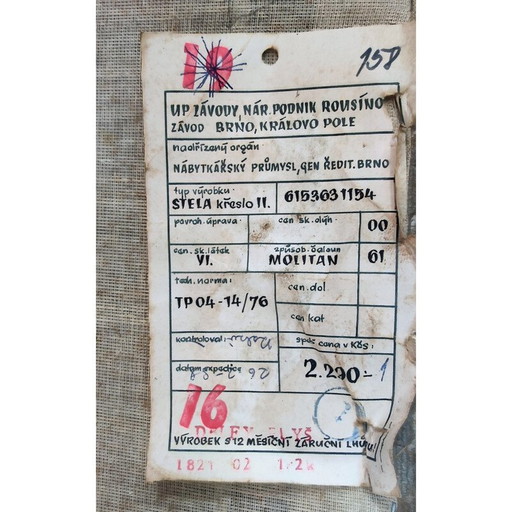 10 158
UP ZÁVODY, NÁR. PODNIK ROUSÍNO
ZÁVOD BRNO, KRÁLOVO POLE
nadřízený orgán:
NÁBYTKÁŘSKÝ PRŮMYSL, GEN ŘEDIT. BRNO
typ výrobku:
STELA křeslo II. 6153631154
povrch. úprava: cen sk. dýh: 00
cen. sk. látek způsob. čaloun
VI. MOLITAN 61
tech. norma: cen. dol
TP 04-14/76
cen kat
kontroloval: spot cena v Kčs:
datum expedice 2.290:-
16
VÝROBEK S 12 MĚSÍČNÍ ZÁRUČNÍ LHŮ
1821 02